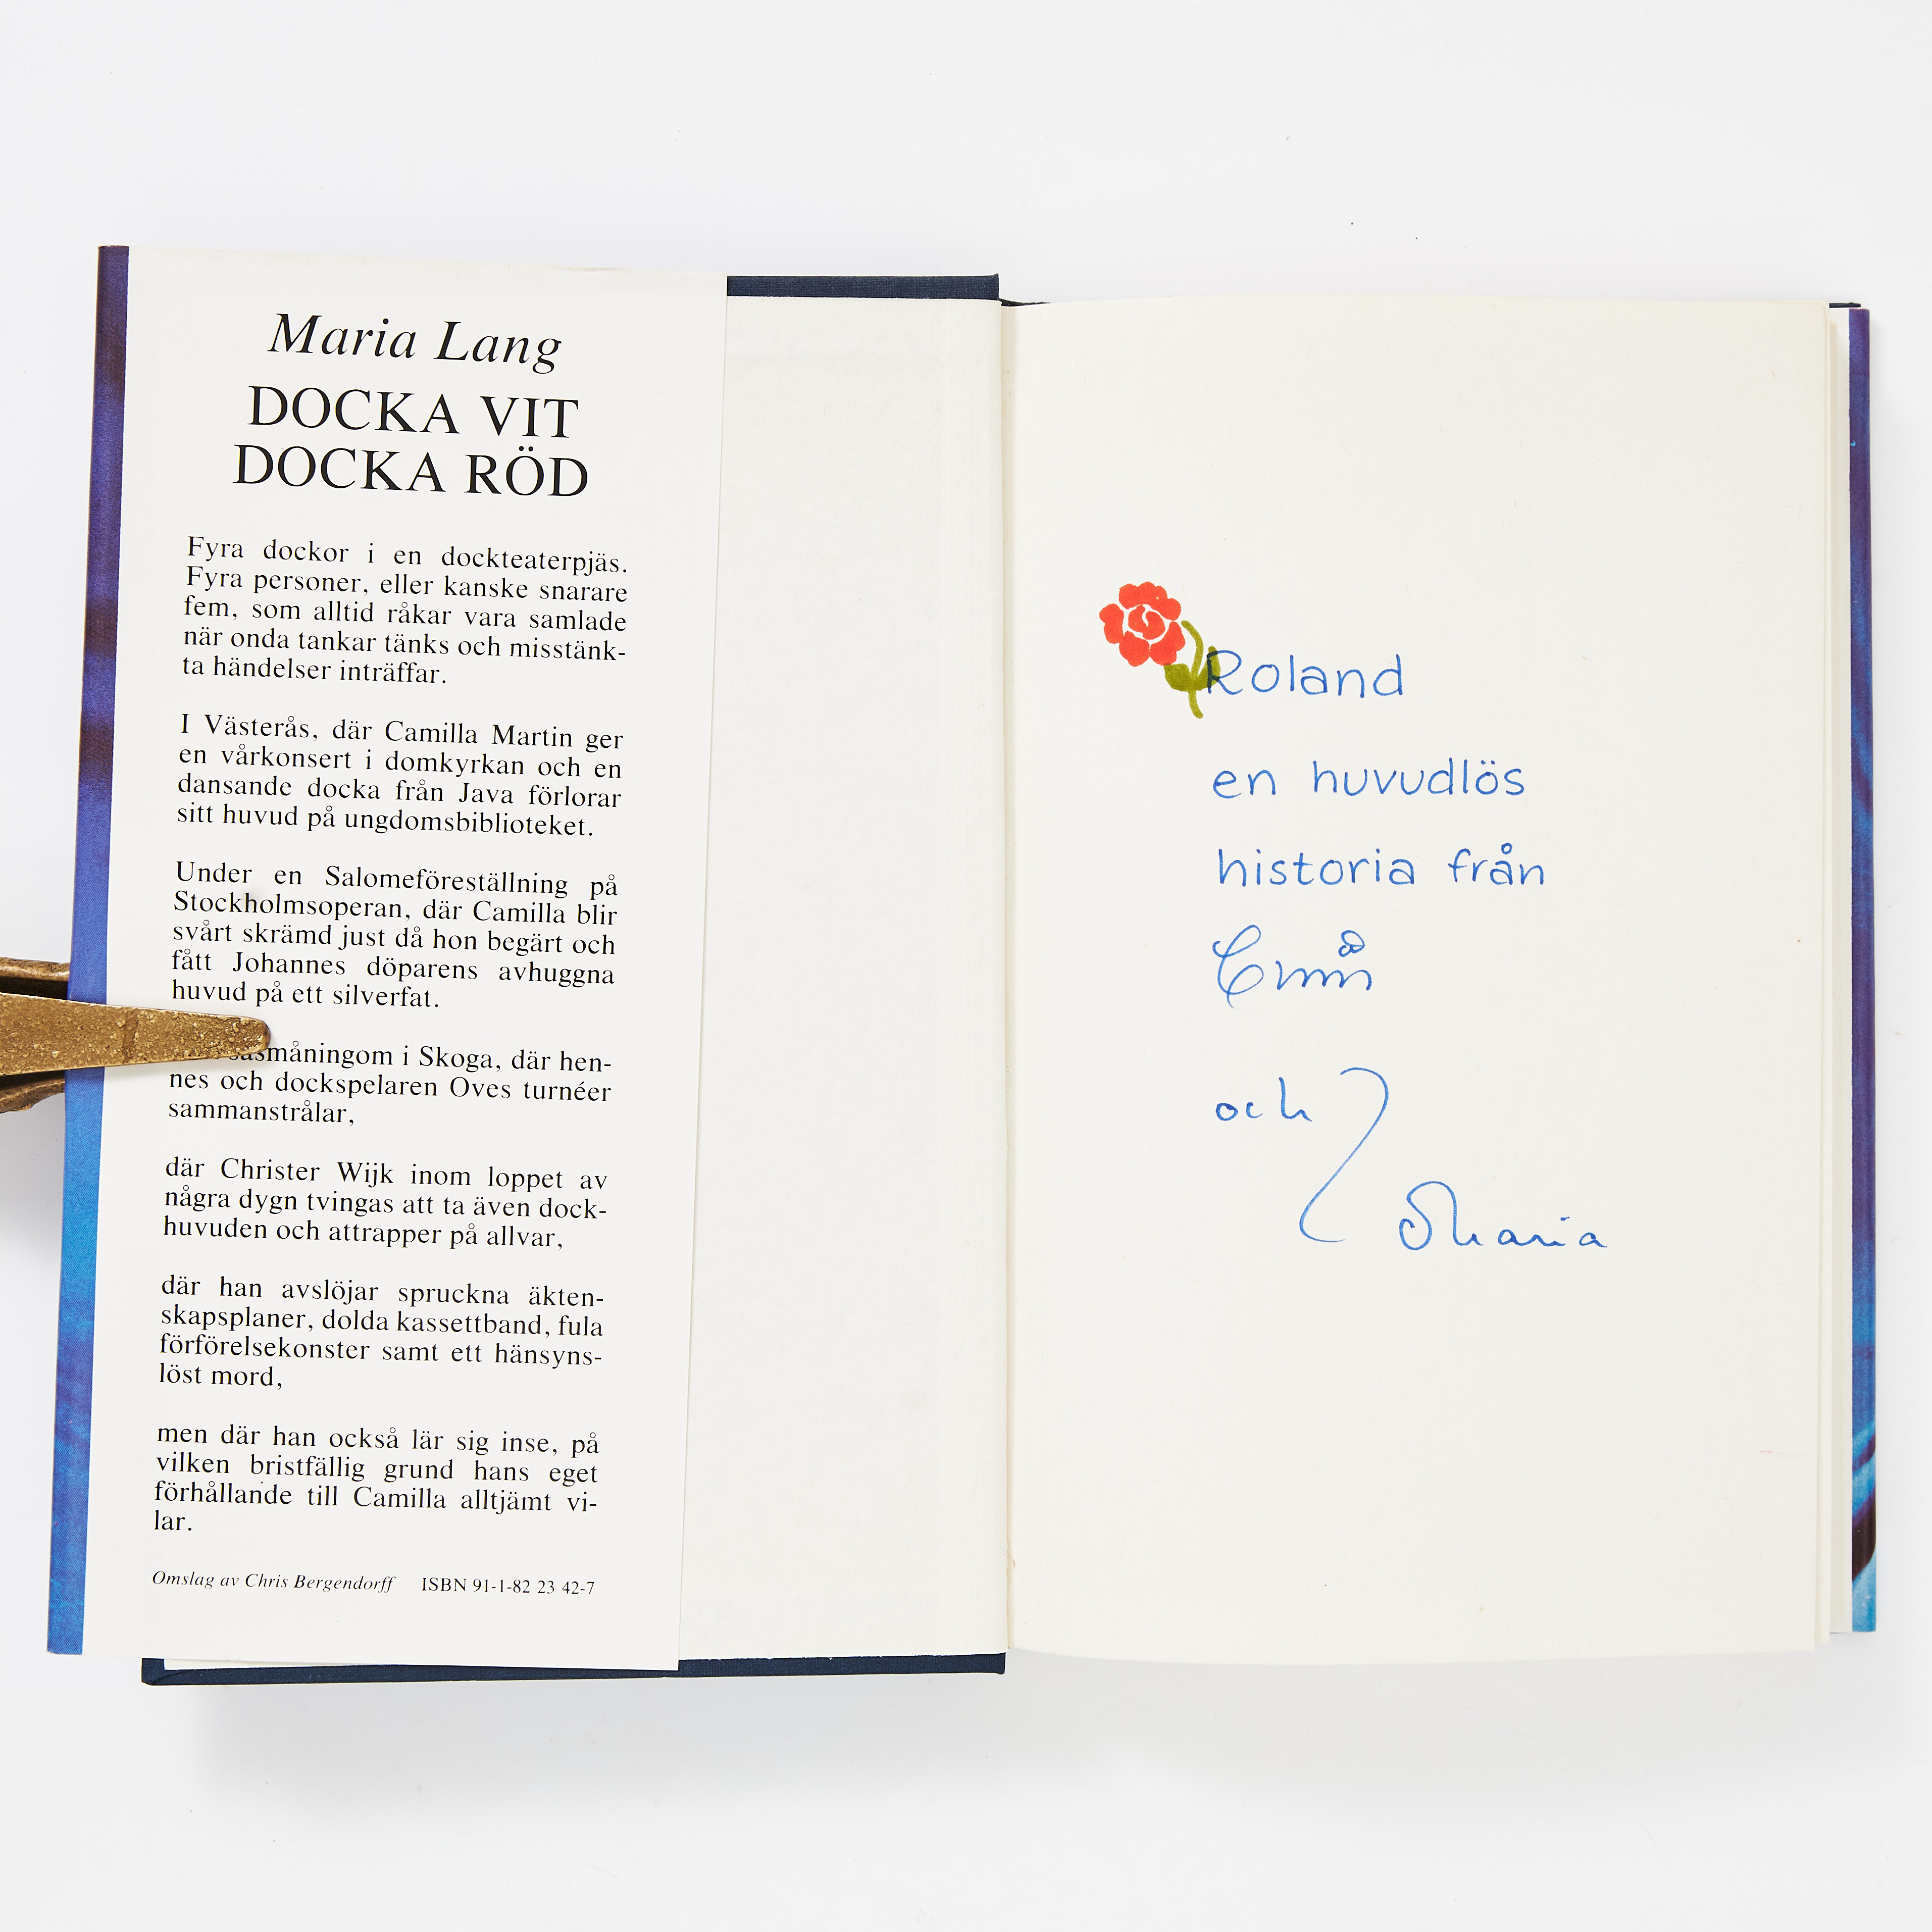 Maria Lang
DOCKA VIT
DOCKA RÖD
Fyra dockor i en dockteaterpjäs.
Fyra personer, eller kanske snarare
fem, som alltid råkar vara samlade
när onda tankar tänks och misstänk-
ta händelser inträffar.
I Västerås, där Camilla Martin ger
en vårkonsert i domkyrkan och en
dansande docka från Java förlorar
sitt huvud på ungdomsbiblioteket.
Under en Salomeföreställning på
Stockholmsoperan, där Camilla blir
svårt skrämd just då hon begärt och
fått Johannes döparens avhuggna
huvud på ett silverfat.
såsmåningom i Skoga, där hen-
nes och dockspelaren Oves turnéer
sammanstrålar,
där Christer Wijk inom loppet av
några dygn tvingas att ta även dock-
huvuden och attrapper på allvar,
där han avslöjar spruckna äkten-
skapsplaner, dolda kassettband, fula
förförelsekonster samt ett hänsyns-
löst mord,
men där han också lär sig inse, på
vilken bristfällig grund hans eget
förhållande till Camilla alltjämt vi-
lar.
Omslag av Chris Bergendorff ISBN 91-1-82 23 42-7
Roland
en huvudlös
historia från
och
Maria